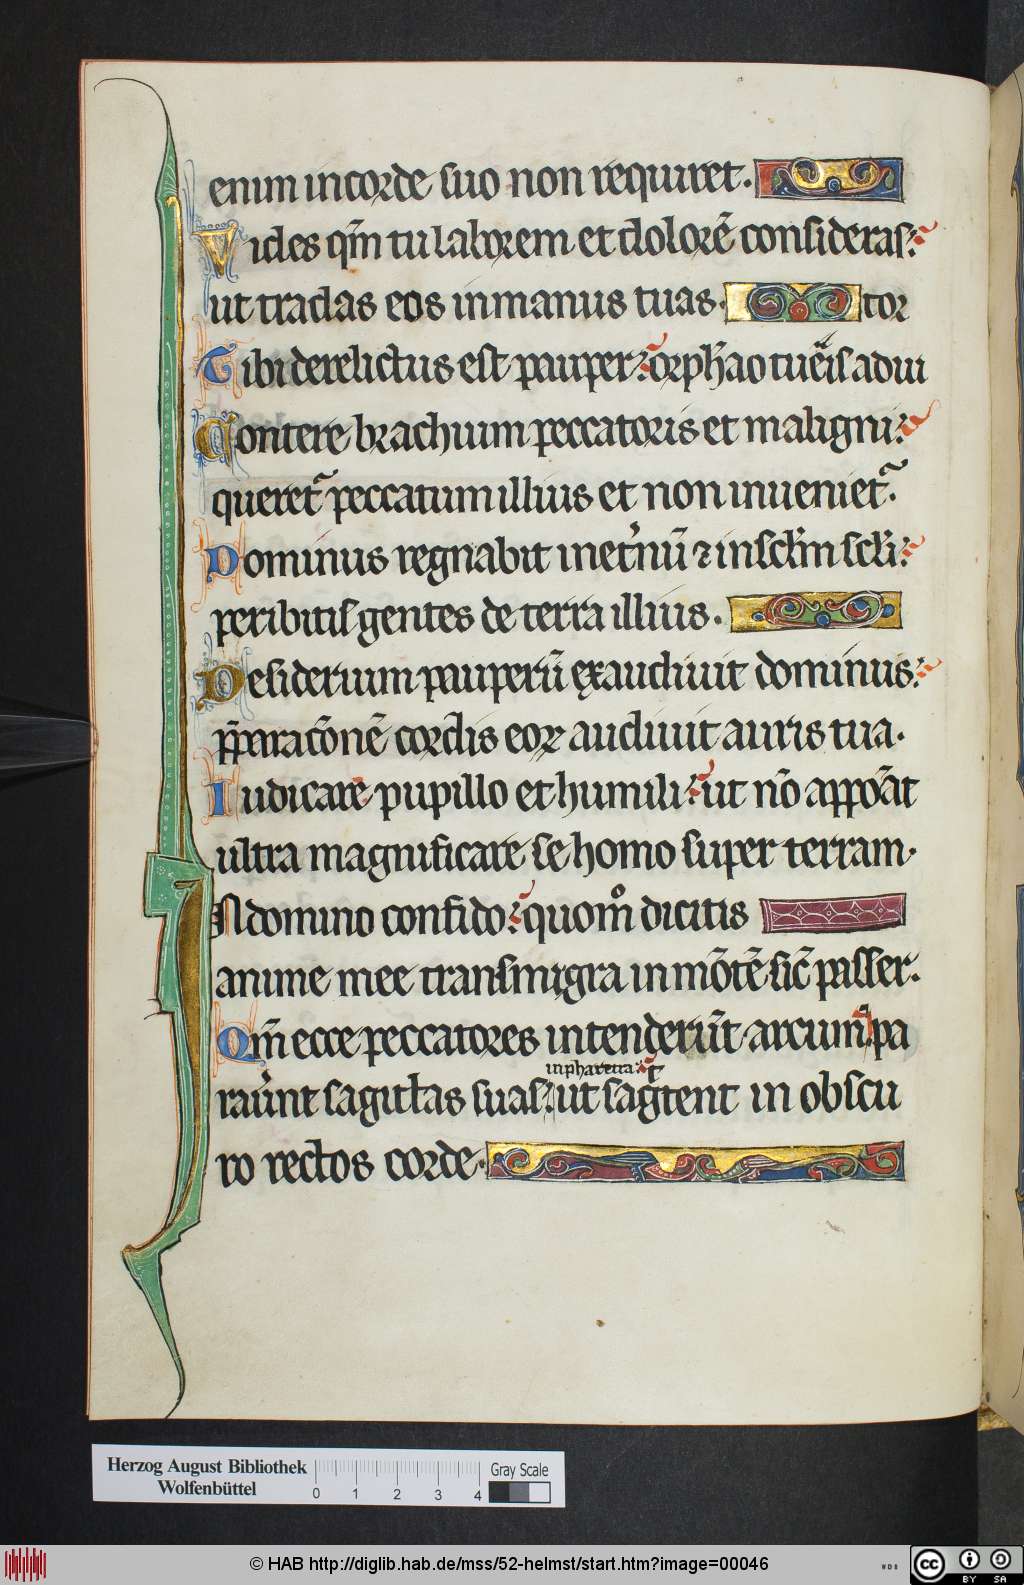 enim in corde suo non requiret.
Vides qm̄ tu laborem et dolorē consideras:
ut tradas eos in manus tuas. tor
Tibi derelictus est pauper: orphao tu eis adiu
Contere brachium peccatoris et maligni:
queret᷑ peccatum illius et non inueniet᷑.
Dominus regnabit inet͛nū ⁊ insc̄lm sc̄li:
peribitis gentes de terra illius.
Desiderium pauperū exaudiuit dominus:
p̄paratōnē cordis eoꝝ audiuit auris tua.
Iudicare pupillo et humili: ut nō appōat
ultra magnificare se homo super terram.
In domino confido: quomͦ dicitis
anime mee transmigra in mōtē sic̄ passer.
Qm̄ ecce peccatores intenderūt arcum: pa
in pharetra:
rau͛nt sagittas suas: ut sagtent in obscu
ro rectos corde.
Herzog August Bibliothek
Wolfenbüttel
0 1 2 3 4
Gray Scale
© HAB http://diglib.hab.de/mss/52-helmst/start.htm?image=00046
WDB
cc BY SA